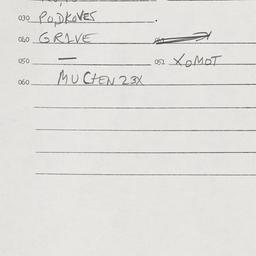 030 PODKOVES.
040 GRIVE
050 — 051 XOMOT
060 MUCTEN 23X